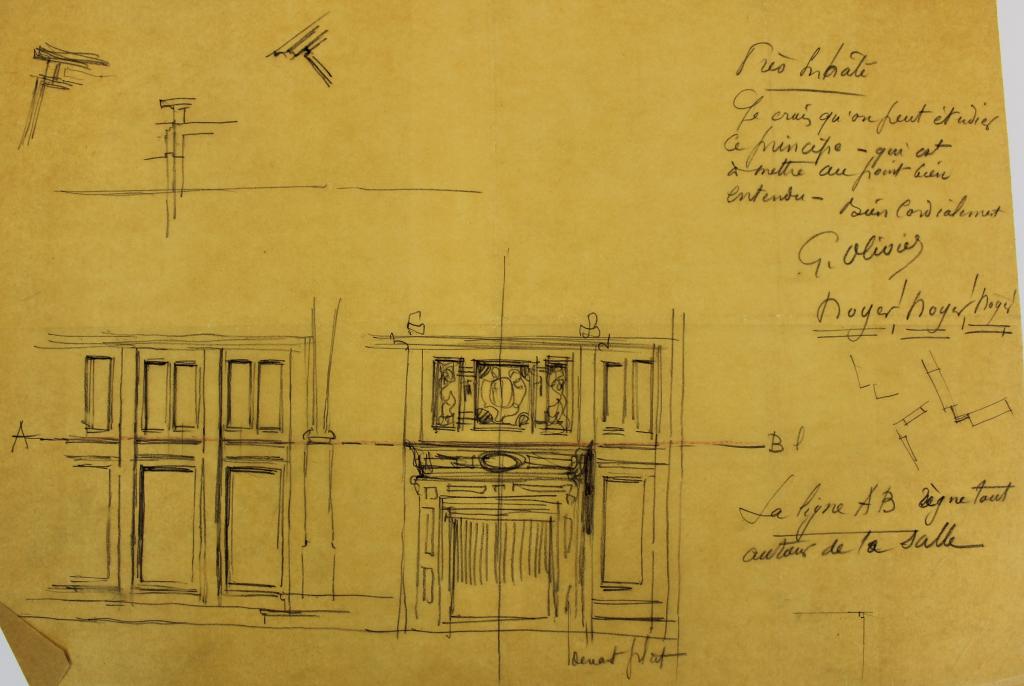 Très hbâté
Je crois qu'on peut étudier
ce principe - qui est
à mettre au point bien
entendu - Bien Cordialement
G. Olivier
noyer! noyer! noyer
A
B
La ligne AB règne tout
autour de la salle